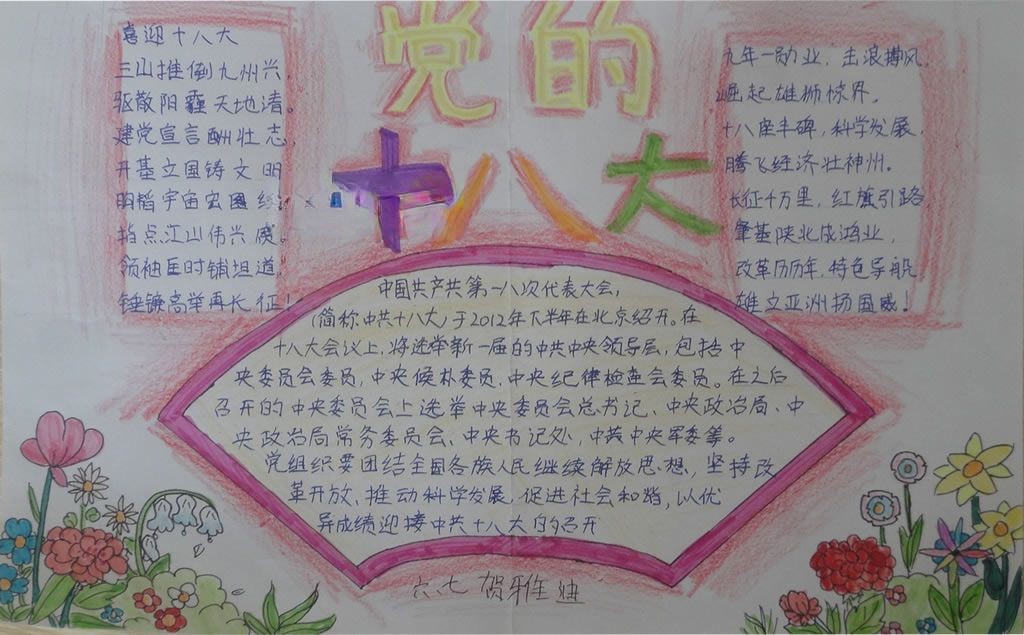 党的
十八大
喜迎十八大
三山推倒九州兴,
驱散阳霾天地清。
建党宣言酬壮志,
开基立国铸文明
明韬宇宙宏图绘,
指点江山伟兴废。
领袖匡时铺坦道,
锤镰高举再长征!
九年一勋业,击浪搏风,
崛起雄狮惊界,
十八座丰碑,科学发展,
腾飞经济壮神州。
长征千万里,红旗引路
肇基陕北成鸿业,
改革历历年,特色导航
雄立亚洲扬国威!
中国共产共第一八次代表大会,
(简称中共十八大)于2012年下半年在北京绍开。在
十八大会议上,将选举新一届的中共中央领导层,包括中
央委员会委员,中央候朴委员、中央纪律检查会委员。在之后
召开的中央委员会上选举中央委员会总书记、中央政治局、中
央政治局常务委员会、中央书记处,中共中央军委等。
党组织要团结全国各族人民继续解放思想,坚持改
革开放、推动科学发展,促进社会和谐,以优
异成绩迎接中共十八大的召开
六七 贺雅迪